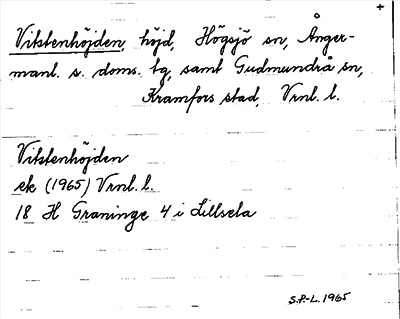 Vitstenhöjden, höjd, Högsjö sn, Ånger-
manl. s. doms. tg, samt Gudmundrå sn,
Kramfors stad, Vrnl. l.
Vitstenhöjden
ek (1965) Vrnl. l.
18 H Graninge 4 i Lillsela
S.P.-L. 1965